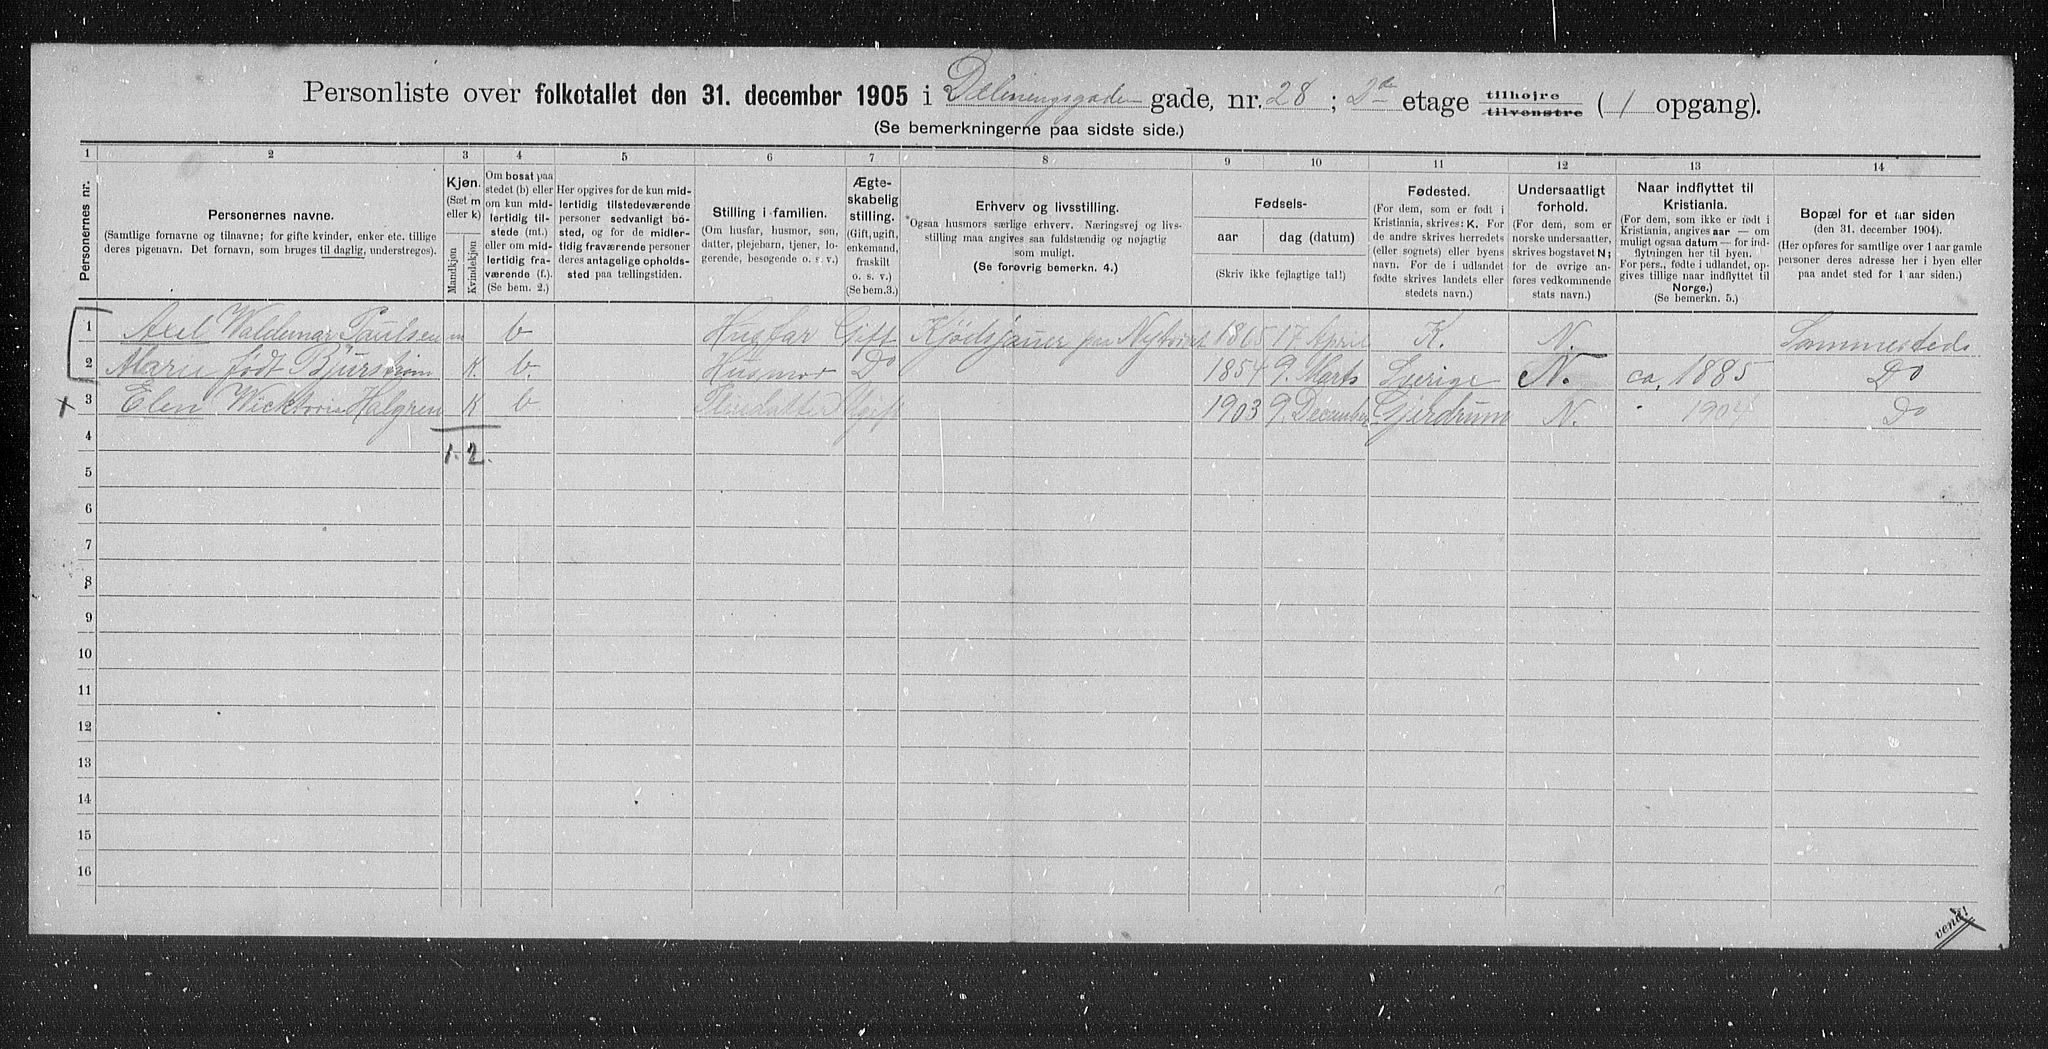 Personliste over folketallet den 31. december 1905 i Delenengsgaden gade, nr. 28 ; 2de etage tilhøjre tilvenstre ( 1 opgang).
(Se bemerkningerne paa sidste side.)
1 2 3 4 5 6 7 8 9 10 11 12 13 14
Personernes nr.
Personernes navne.
(Samtlige fornavne og tilnavne; for gifte kvinder, enker etc. tillige
deres pigenavn. Det fornavn, som bruges til daglig, understreges).
Kjøn.
(Sæt m
eller k)
Mandkjøn
Kvindekjøn
Om bosat paa
stedet (b) eller
om kun mid-
lertidig til-
stede (mt.)
eller om mid-
lertidig fra-
værende (f.)
(Se bem. 2.)
Her opgives for de kun mid-
lertidig tilstedeværende
personer sedvanligt bo-
sted, og for de midler-
tidig fraværende personer
deres antagelige opholds-
sted paa tællingstiden.
Stilling i familien.
(Om husfar, husmor, søn,
datter, plejebarn, tjener, lo-
gerende, besøgende o. s. v.)
Ægte-
skabelig
stilling.
(Gift, ugift,
enkemand,
fraskilt
o. s. v.)
(Se bem. 3.)
Erhverv og livsstilling.
Ogsaa husmors særlige erhverv. Næringsvej og livs-
stilling maa angives saa fuldstændig og nøjagtig
som muligt.
(Se forøvrig bemerkn. 4.)
Fødsels-
aar
dag (datum)
(Skriv ikke fejlagtige tal!)
Fødested.
(For dem, som er født i
Kristiania, skrives: K. For
de andre skrives herredets
(eller sognets) eller byens
navn. For de i udlandet
fødte skrives landets eller
stedets navn.)
Undersaatligt
forhold.
(For dem, som er
norske undersaatter,
skrives bogstavet N;
for de øvrige an-
føres vedkommende
stats navn.)
Naar indflyttet til
Kristiania.
(For dem, som ikke er født i
Kristiania, angives aar — om
muligt ogsaa datum — for ind-
flytningen her til byen.
For pers., fødte i udlandet, op-
gives tillige naar indflyttet til
Norge.)
(Se bemerkn. 5.)
Bopæl for et aar siden
(den 31. december 1904.)
(Her opføres for samtlige over 1 aar gamle
personer deres adresse her i byen eller
paa andet sted for 1 aar siden.)
1 Axel Waldemar Paulsen m b Husfar Gift Kjødsjauer paa Nytorvet 1865 17 April K. N. Sammesteds
2 Marie født Bjurstrøm K. b. Husmor Do 1854 9. Marts Sverige N. ca. 1885 Do
3 Elen Wicktoria Halgren K b Pleiedatter Ugift 1903 9. December Gjerdrum N. 1904 Do
4
1. 2.
5
6
7
8
9
10
11
12
13
14
15
16
vend!